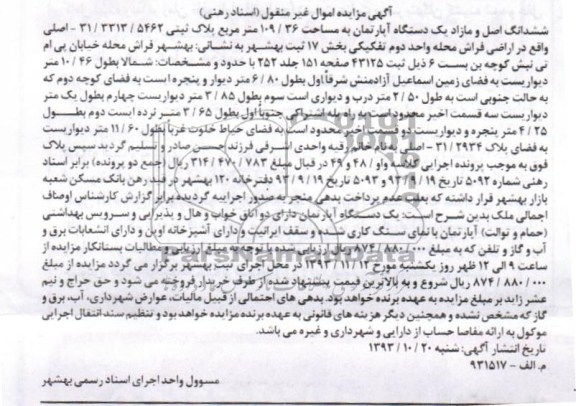 آگهی مزایده اموال غیر منقول (اسناد رهنی)
ششدانگ اصل و مازاد یک دستگاه آپارتمان به مساحت 109/36 متر مربع پلاک ثبتی 5462/3313/31 - اصلی
واقع در اراضی فراش محله واحد دوم تفکیکی بخش 17 ثبت بهشهر به نشانی: بهشهر فراش محله خیابان پی ام
تی نبش کوچه بن بست 6 ذیل ثبت 43125 صفحه 151 جلد 252 با حدود و مشخصات: شمالا بطول 10/46 متر
دیواریست به فضای زمین اسماعیل آزادمنش شرقاً اول بطول 6/80 متر دیوار و پنجره است به فضای کوچه دوم که
به حالت جنوبی است به طول 2/50 متر درب و دیواری است سوم بطول 3/85 متر دیواریست چهارم بطول یک متر
دیواریست سه قسمت اخیر محدود است به راه پله اشتراکی جنوباً اول بطول 3/65 متر نرده است دوم بطول
4/25 متر پنجره و دیواریست دو قسمت اخیر محدود است به فضای حیاط خلوت غرباً بطول 11/60 متر دیواریست
به فضای پلاک 2934/31 - اصلی به نام خانم رقیه واحدی اشرفی فرزند حسن صادر و تسلیم گردید سپس پلاک
فوق به موجب پرونده اجرایی کلاسه واو/48 و 49 در قبال مبلغ 314/470/783 ریال (جمع دو پرونده) برابر اسناد
رهنی شماره 5092 تاریخ 93/9/19 و 5093 تاریخ 93/9/19 دفترخانه 120 بهشهر در قید رهن بانک مسکن شعبه
بازار بهشهر قرار داشته که بعلت عدم پرداخت بدهی منجر به صدور اجراییه گردیده برابر گزارش کارشناس اوصاف
اجمالی ملک بدین شرح است: یک دستگاه آپارتمان دارای دو اتاق خواب و هال و پذیرایی و سرویس بهداشتی
(حمام و توالت) آپارتمان با نمای سنگ کاری شده و سقف ایرانیت و دارای آشپزخانه اوپن و دارای انشعابات برق و
آب و گاز و تلفن که به مبلغ 874/880/000 ریال ارزیابی شده با توجه به مبلغ ارزیابی و مطالبات بستانکار مزایده از
ساعت 9 الی 12 ظهر روز یکشنبه مورخ 1393/11/12 در محل اجرای ثبت بهشهر برگزار می گردد مزایده از مبلغ
874/880/000 ریال شروع و به بالاترین قیمت پیشنهاد شده از طرف خریدار فروخته می شود و حق حراج و نیم
عشر زاید بر مبلغ مزایده به عهده برنده خواهد بود. بدهی های اجتمالی از قبیل مالیات، عوارض شهرداری، آب، برق و
گاز که مشخص نشده و همچنین دیگر هزینه های قانونی به عهده برنده مزایده خواهد بود و تنظیم سند انتقال اجرایی
موکول به ارائه مفاصا حساب از دارایی و شهرداری و غیره می باشد.
تاریخ انتشار آگهی: شنبه 1393/10/20
م. الف - 931517
مسوول واحد اجرای اسناد رسمی بهشهر
ParsNamadData